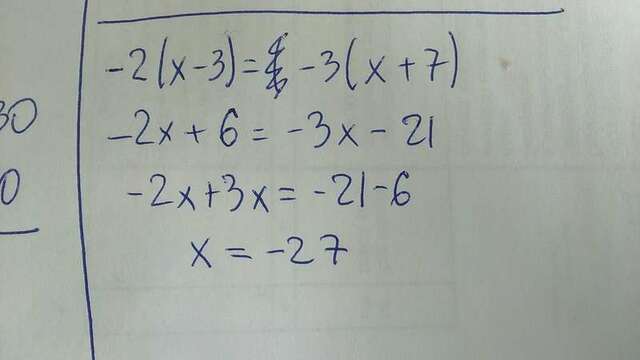 -2(x-3)= -3(x+7)
30
-2x+6=-3x-21
0
-2x+3x=-21-6
x=-27